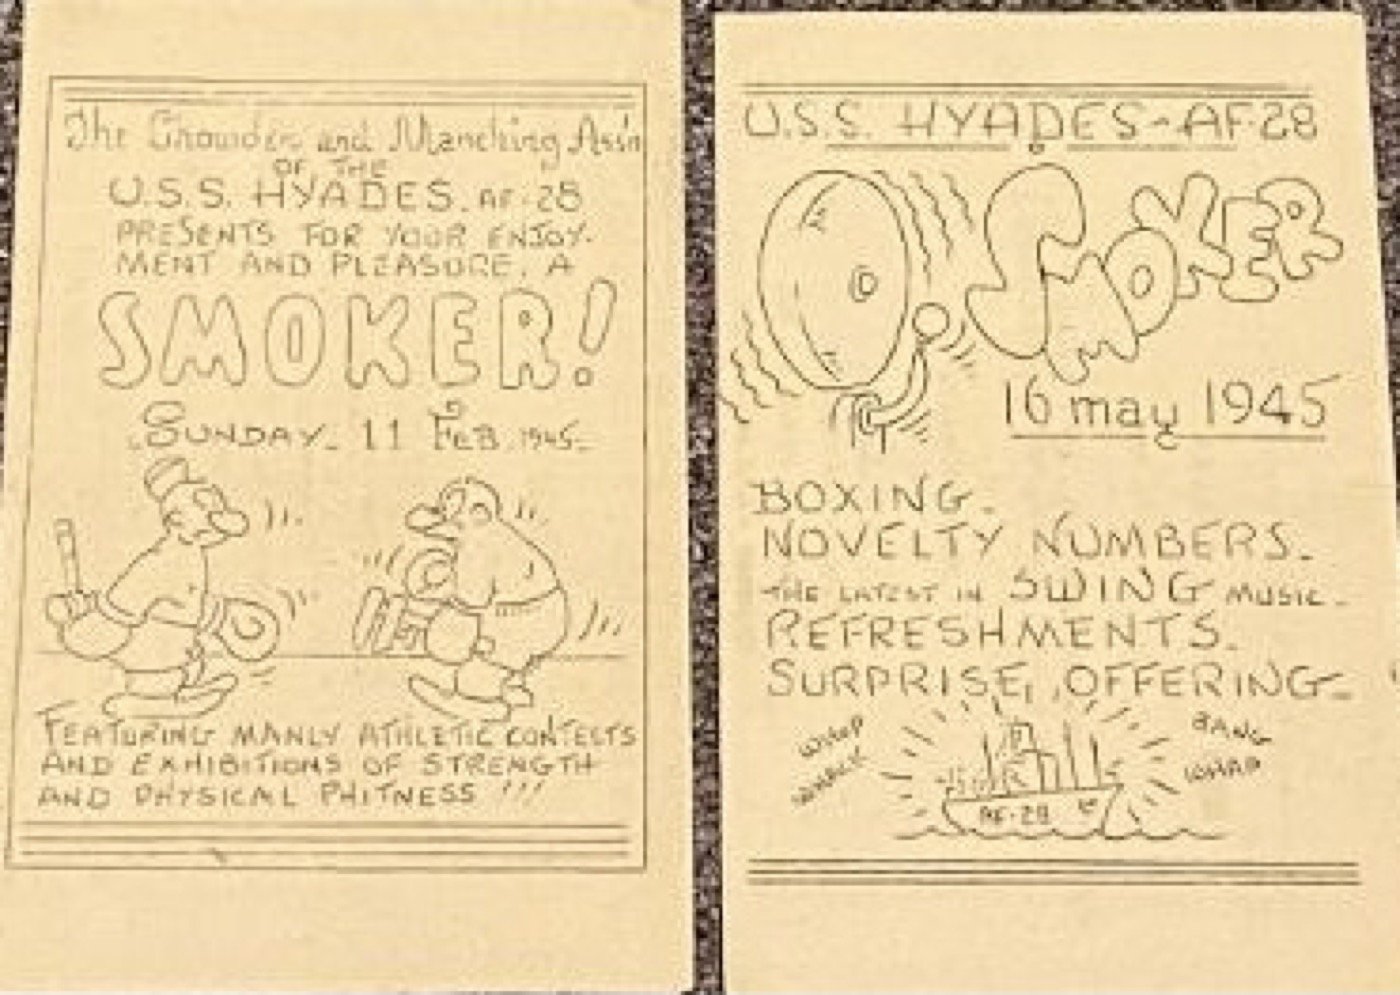 The Chowder and Marching Ass'n
OF THE
U.S.S. HYADES. AF-28
PRESENTS FOR YOUR ENJOY-
MENT AND PLEASURE, A
SMOKER!
SUNDAY - 11 FEB. 1945 -
FEATURING MANLY ATHLETIC CONTESTS
AND EXHIBITIONS OF STRENGTH
AND PHYSICAL PHITNESS !!!
U.S.S. HYADES - AF-28
SMOKER
16 may 1945
BOXING -
NOVELTY NUMBERS -
THE LATEST IN SWING MUSIC -
REFRESHMENTS -
SURPRISE, OFFERING -
WHAP BANG
WHACK WHAP
AF-28